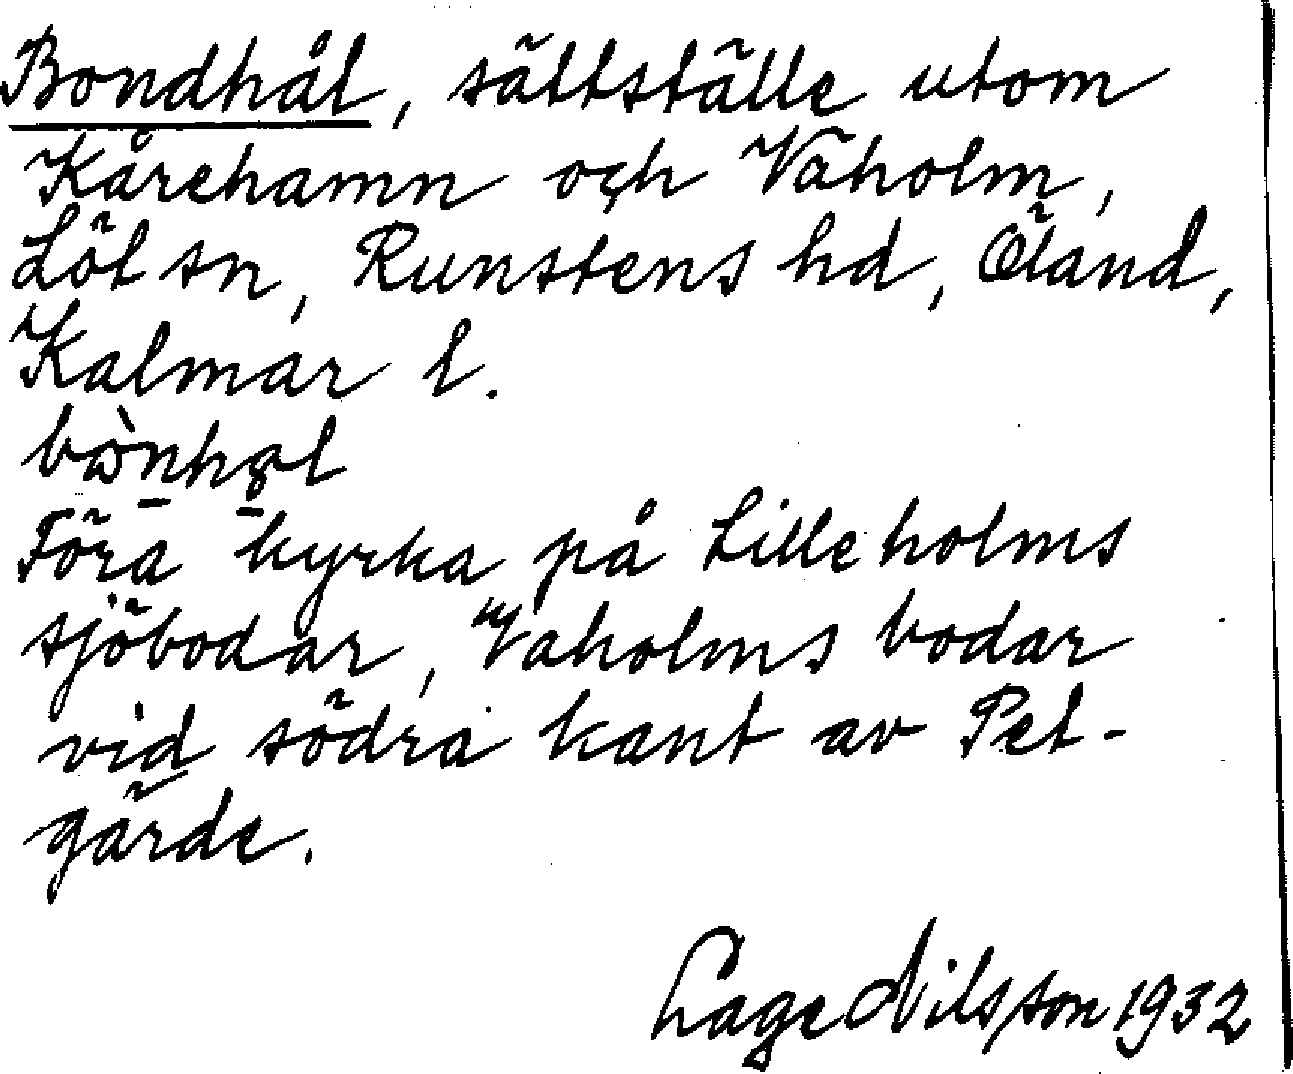 Bondhål, sättställe utom
Kårehamn och Vaholm,
Löt sn, Runstens hd, Öland,
Kalmar l.
Föra kyrka på Lilleholms
sjöbodar, Vaholms bodar
vid södra kant av Pet-
gärde.
Lage Nilsson 1932